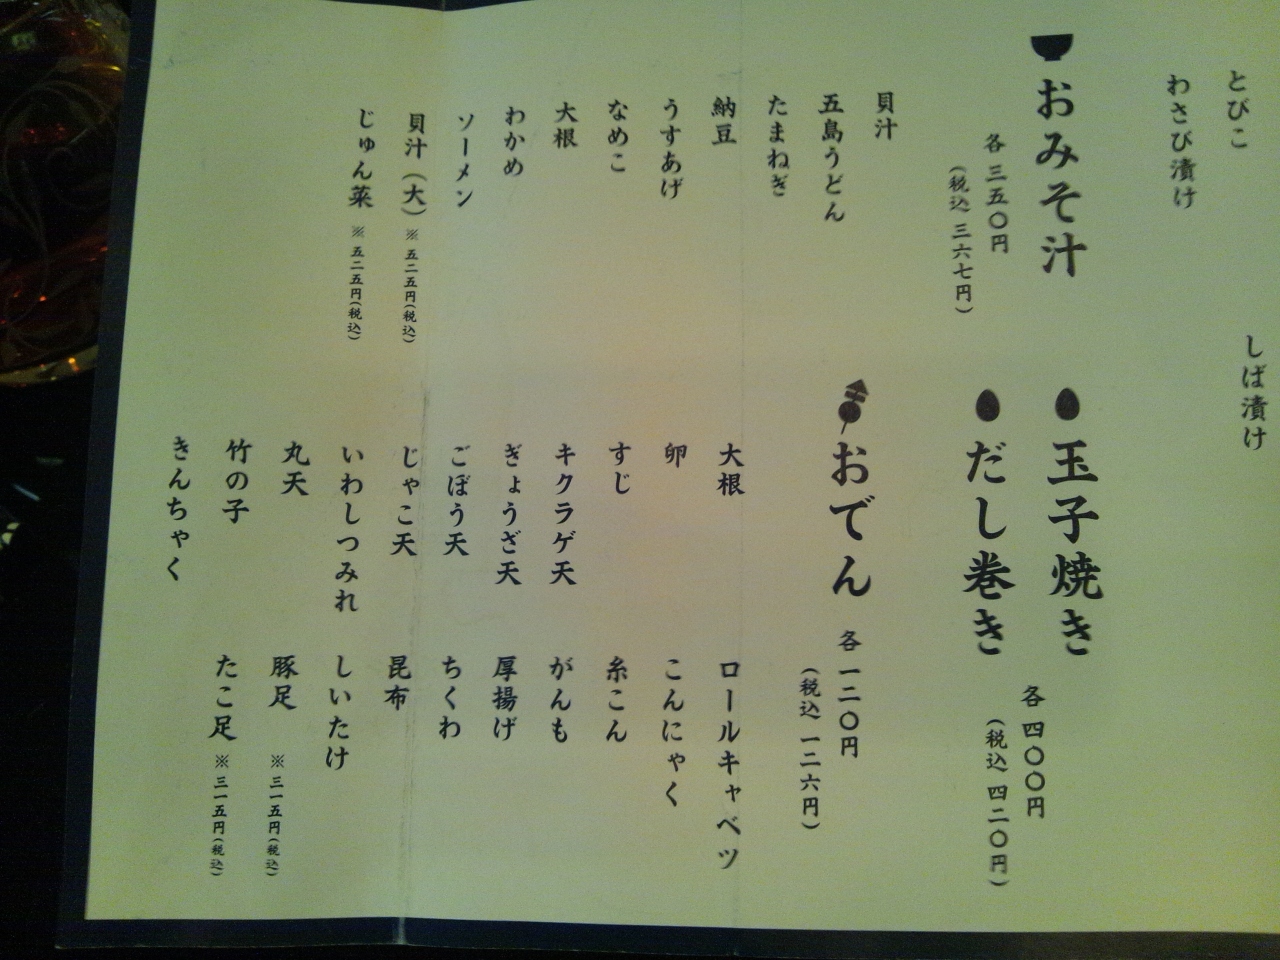 とびこ
わさび漬け
しば漬け
おみそ汁
各 三五〇円
（税込 三六七円）
貝汁
五島うどん
たまねぎ
納豆
うすあげ
なめこ
大根
わかめ
ソーメン
貝汁（大）※ 五二五円（税込）
じゅん菜 ※ 五二五円（税込）
玉子焼き
だし巻き
各 四〇〇円
（税込 四二〇円）
おでん
各 一二〇円
（税込 一二六円）
大根
卵
すじ
キクラゲ天
ぎょうざ天
ごぼう天
じゃこ天
いわしつみれ
丸天
竹の子
きんちゃく
ロールキャベツ
こんにゃく
糸こん
がんも
厚揚げ
ちくわ
昆布
しいたけ
豚足 ※ 三一五円（税込）
たこ足 ※ 三一五円（税込）